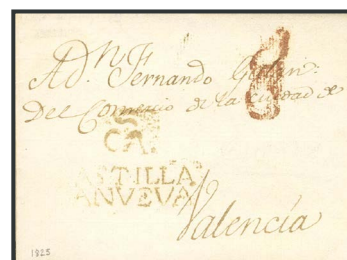 A Dn. Fernando
Del Comercio de la Ciudad de
8
CA.
ASTILLA
ANUEVA
Valencia
1825